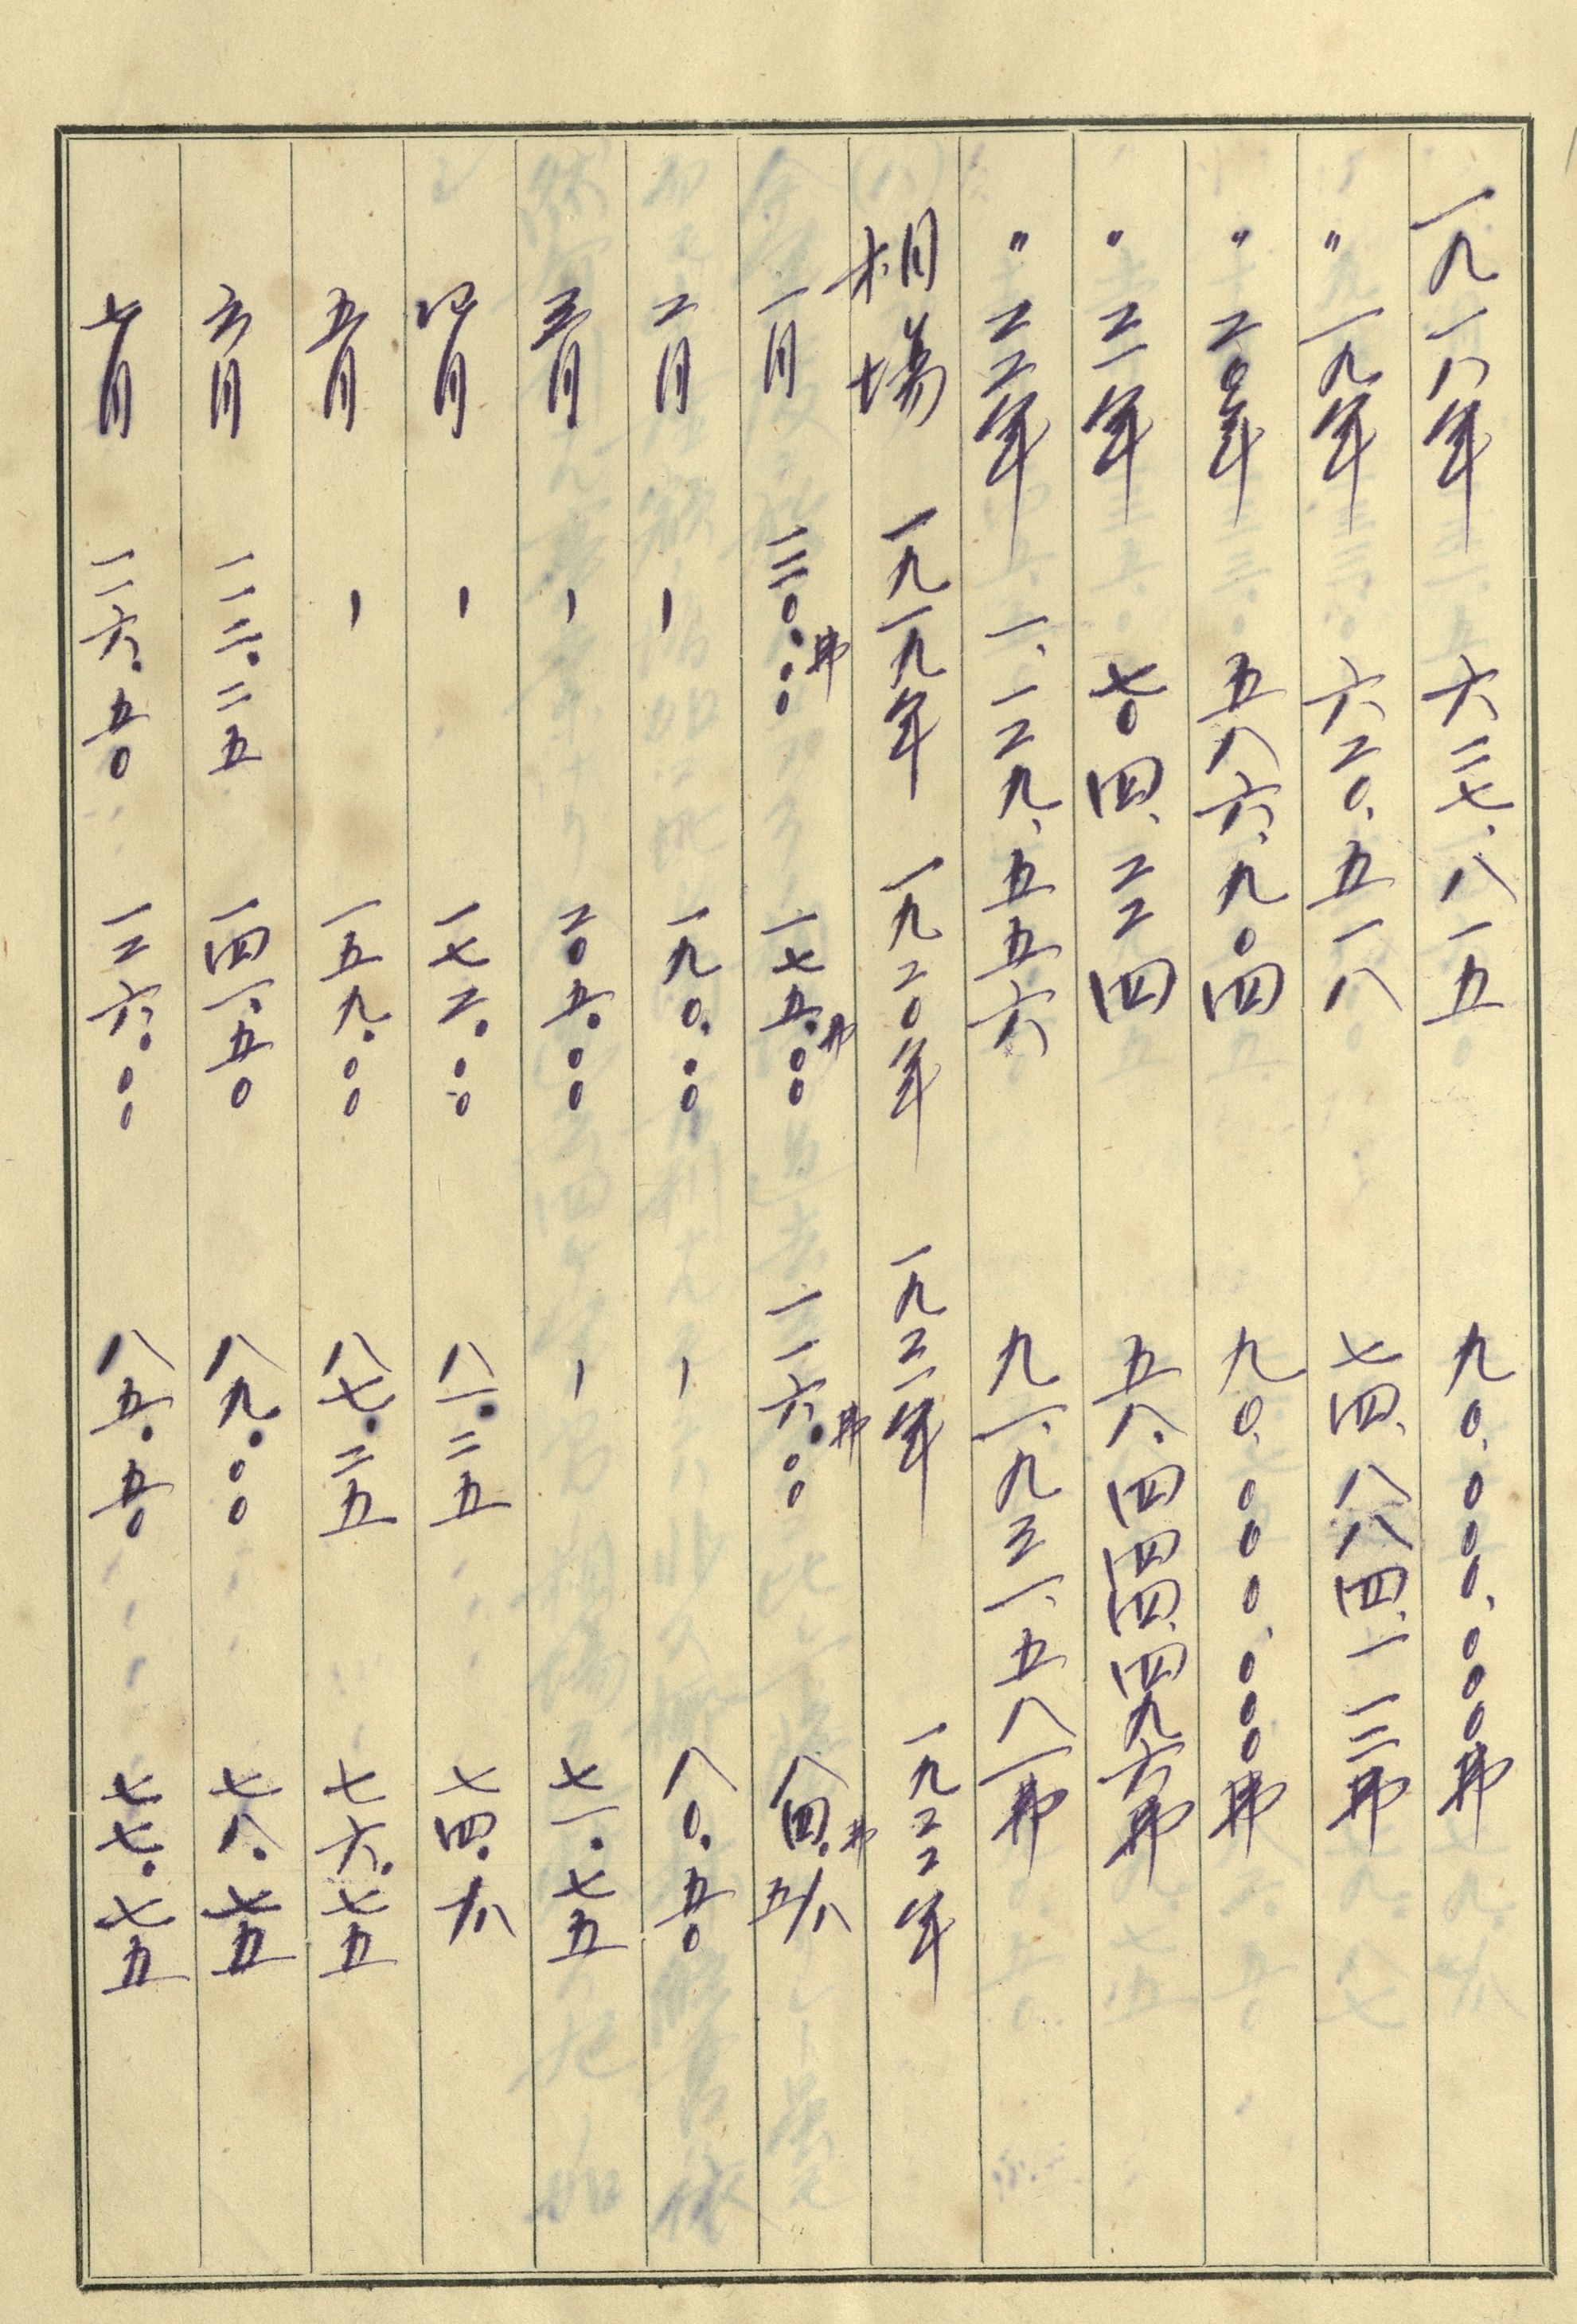 一九一八年 六二七、八一五 九〇、〇〇〇、〇〇〇弗
〃 一九年 六二〇、五一八 七四、八八四、一一二弗
〃 二〇年 五八六、九〇四 九〇、〇〇〇、〇〇〇弗
〃 二一年 七〇四、二二四 五八、四四四、四九六弗
〃 二二年 一、一二九、五五六 九一、九三一、五八一弗
相場 一九一九年 一九二〇年 一九二一年 一九二二年
一月 一三〇.〇〇弗 一七五.〇〇弗 一一六.〇〇弗 八四.五/八弗
二月 — 一九〇.〇〇 — 八〇.五〇
三月 — 二〇五.〇〇 — 七一.七五
四月 — 一七二.〇〇 八一.二五 七四.
五月 — 一五九.〇〇 八七.二五 七六.七五
六月 一一二.二五 一四一.五〇 八九.〇〇 七八.七五
七月 一一六.五〇 一二六.〇〇 八五.五〇 七七.七五